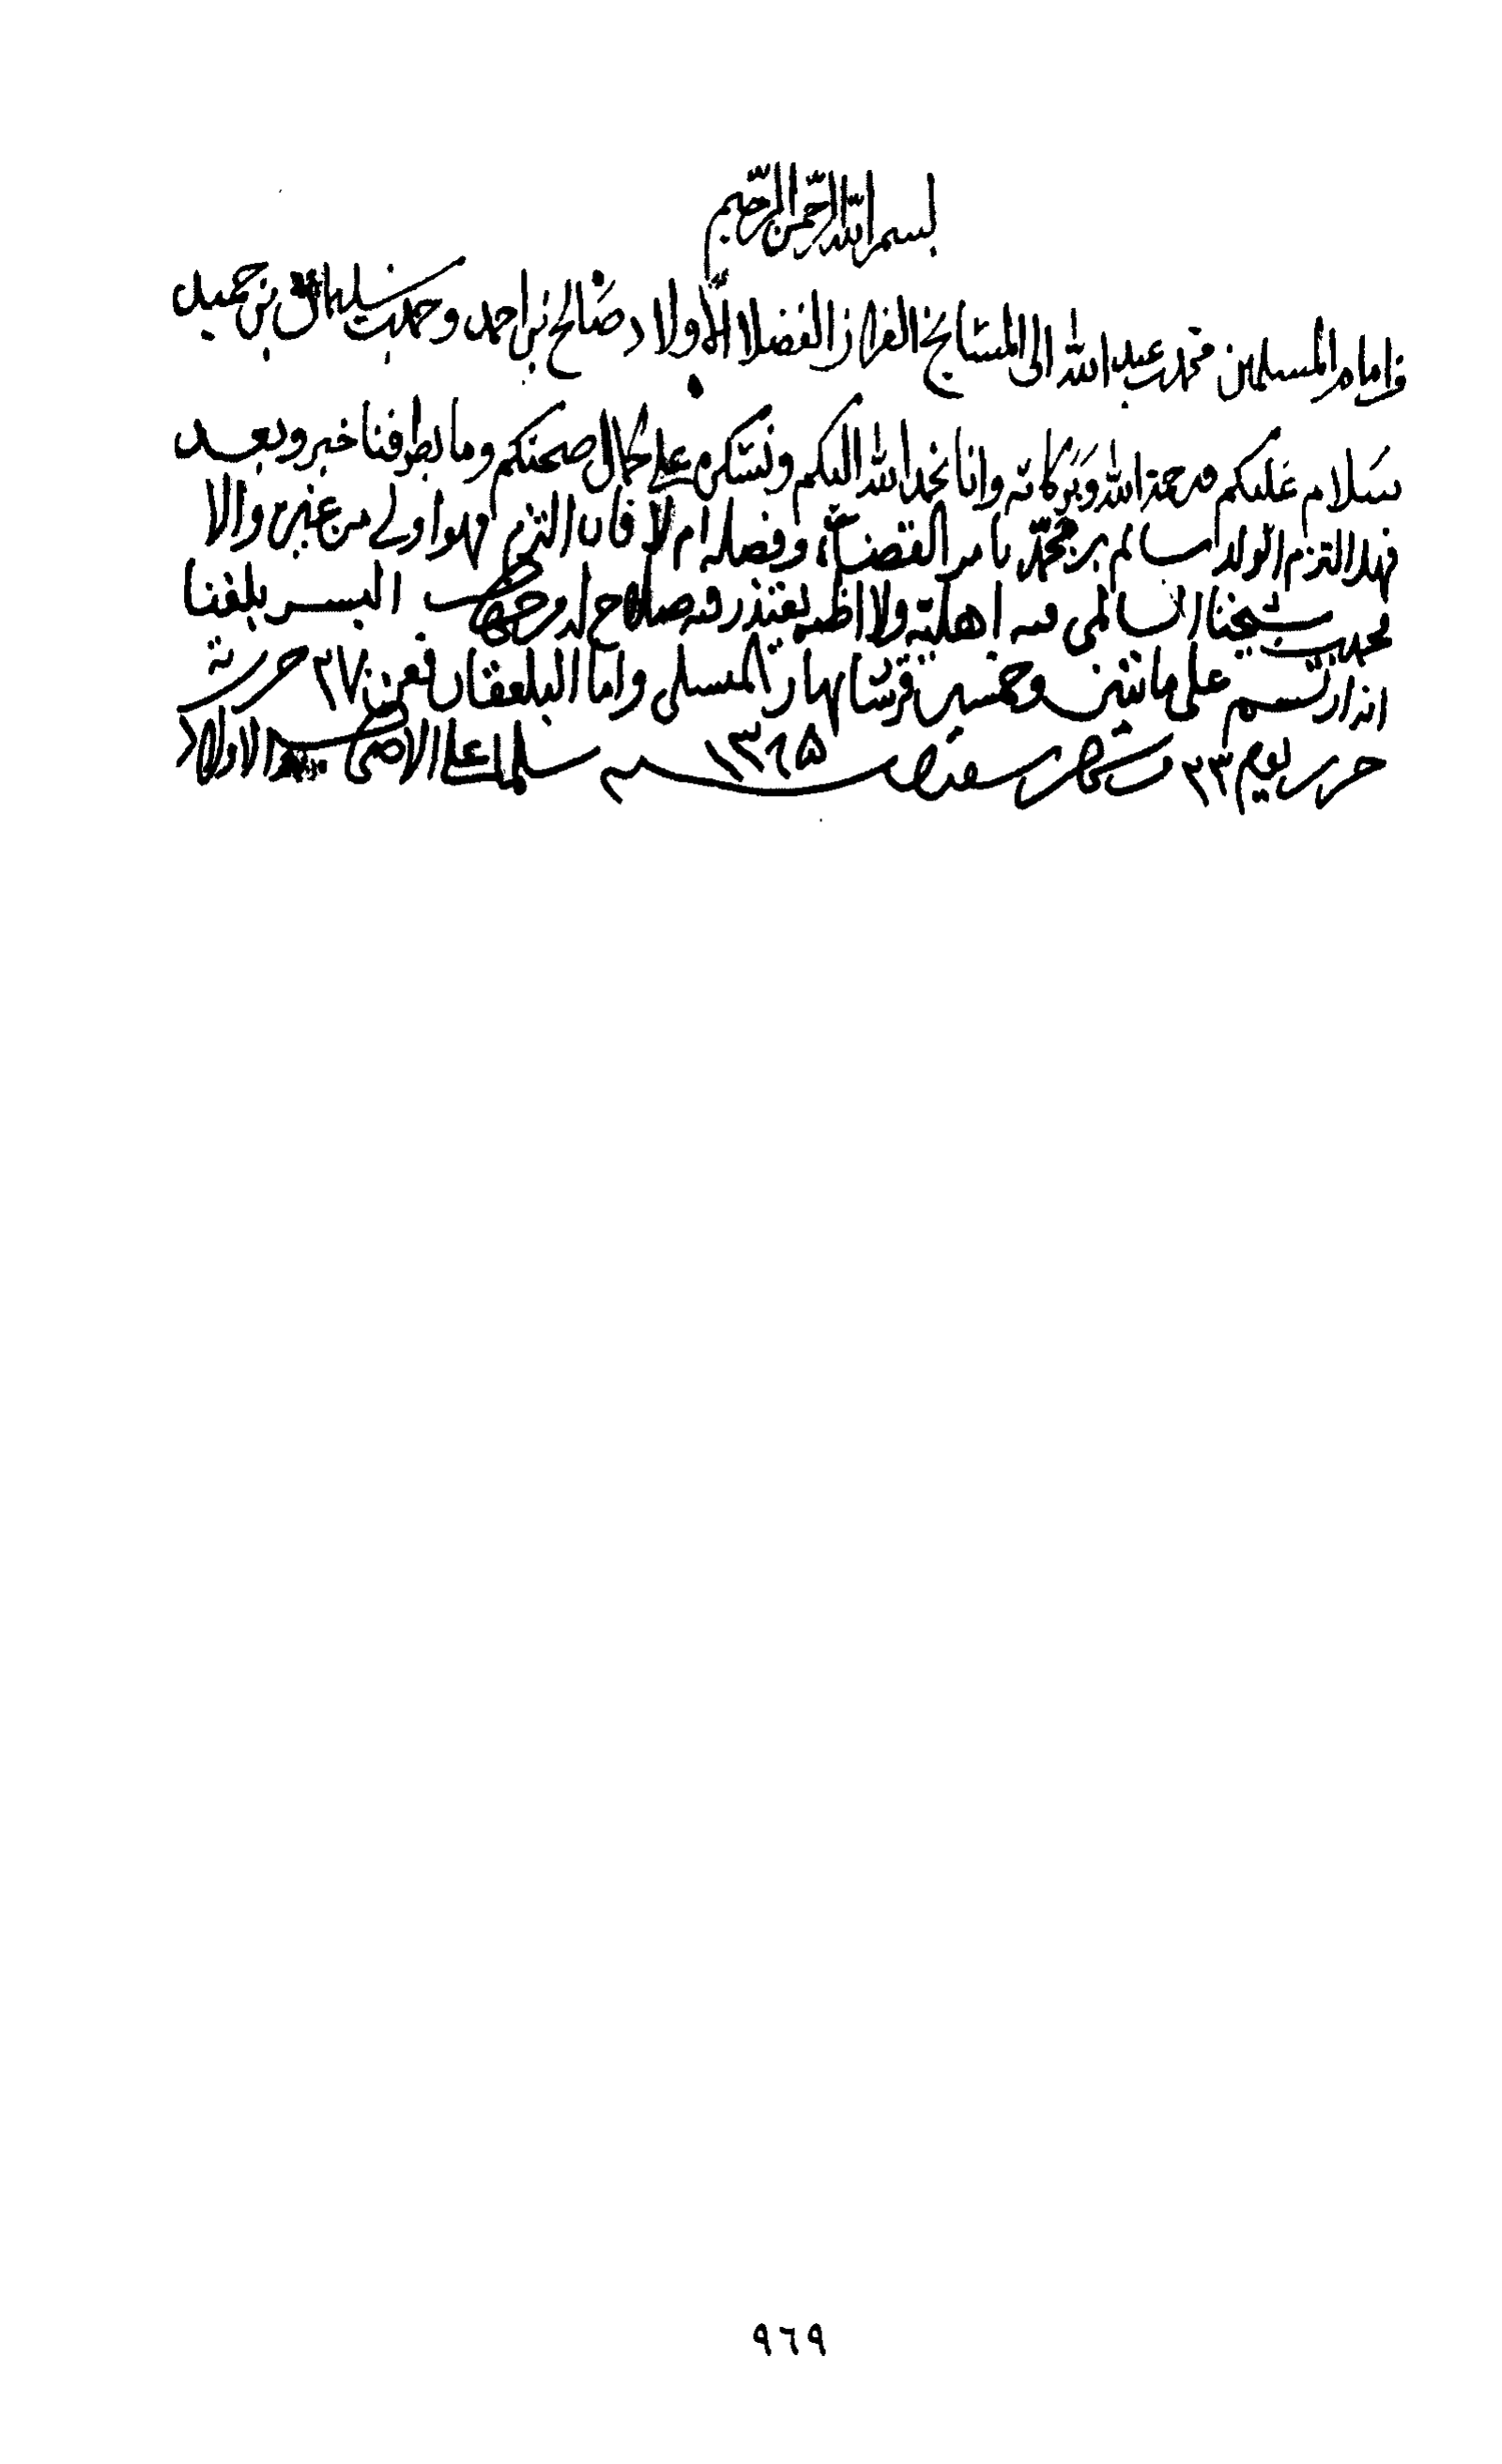 بسم الله الرحمن الرحيم
من امام المسلمين محمد بن عبد الله الى المشايخ العزاز الفضلا الأولاد صالح بن احمد وحمد بن سليمان بن حميد
سلام عليكم ورحمة الله وبركاته وانا نحمد الله اليكم ونشكره على كمال صحتكم وما بطرفنا خبر وبعد
فهل التزم الولد سالم بن محمد بامر القضاء وفصله ام لا فان التزم فهو اولى من غيره والا
محمد بن شيخنا السالمي فيه اهلية ولا اظنه يعتذر وفيه صلاح له من جهات البسر بلغنا
انه ارتسم على مائتين وخمسين قرشا المسلي واما البلعقان فعن ٢٧ حرر ته
حرر يوم ٢٣ من شهر سنة ١٣٦٥ سلم لنا على الاولاد
٩٦٩